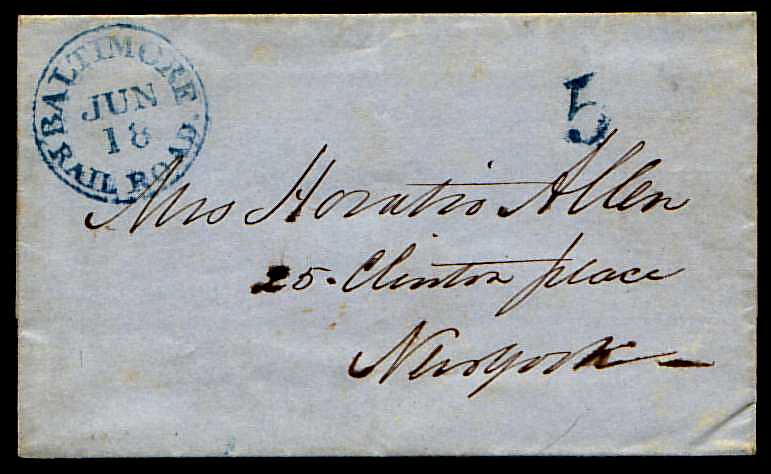 BALTIMORE
JUN
18
RAIL ROAD.
5
Mrs Horatio Allen
25. Clinton place
New York